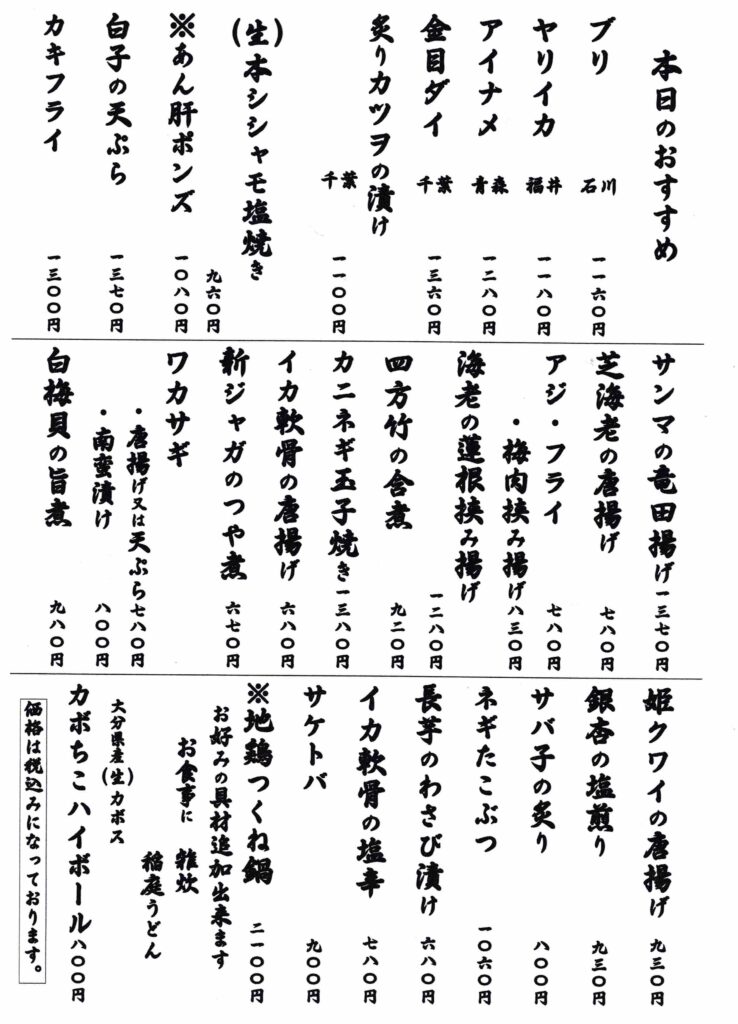 本日のおすすめ
ブリ 石川 一一六〇円
ヤリイカ 福井 一一八〇円
アイナメ 青森 一二八〇円
金目ダイ 千葉 一三六〇円
炙りカツヲの漬け
千葉 一一〇〇円
(生)本シシャモ塩焼き
九六〇円
※あん肝ポンズ 一〇八〇円
白子の天ぷら 一三七〇円
カキフライ 一三〇〇円
サンマの竜田揚げ 一三七〇円
芝海老の唐揚げ 七八〇円
アジ・フライ 七八〇円
・梅肉挟み揚げ 八三〇円
海老の蓮根挟み揚げ
一二八〇円
四方竹の含煮 九二〇円
カニネギ玉子焼き 一三八〇円
イカ軟骨の唐揚げ 六八〇円
新ジャガのつや煮 六七〇円
ワカサギ
・唐揚げ又は天ぷら 七八〇円
・南蛮漬け 八〇〇円
白梅貝の旨煮 九八〇円
姫クワイの唐揚げ 九三〇円
銀杏の塩煎り 九三〇円
サバ子の炙り 八〇〇円
ネギたこぶつ 一〇六〇円
長芋のわさび漬け 六八〇円
イカ軟骨の塩辛 七八〇円
サケトバ 九〇〇円
※地鶏つくね鍋 二一〇〇円
お好みの具材追加出来ます
お食事に 雑炊
稲庭うどん
大分県産(生)カボス
カボちこハイボール 八〇〇円
価格は税込みになっております。